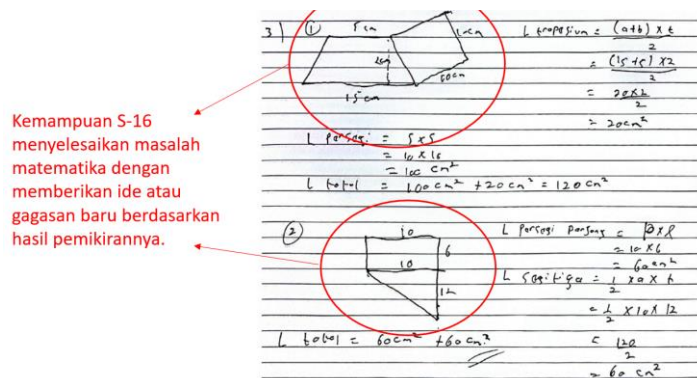 Kemampuan S-16
menyelesaikan masalah
matematika dengan
memberikan ide atau
gagasan baru berdasarkan
hasil pemikirannya.
3) ①
5 cm
10cm
2cm
10cm
15cm
L trapesium = (a+b) x t / 2
= (15+5) x 2 / 2
= 20x2 / 2
= 20cm²
L persegi = s x s
= 10 x 10
= 100 cm²
L total = 100cm² + 20cm² = 120cm²
②
10
6
10
12
L persegi panjang = p x l
= 10 x 6
= 60cm²
L segitiga = 1/2 x a x t
= 1/2 x 10 x 12
= 120 / 2
= 60 cm²
L total = 60cm² + 60cm²